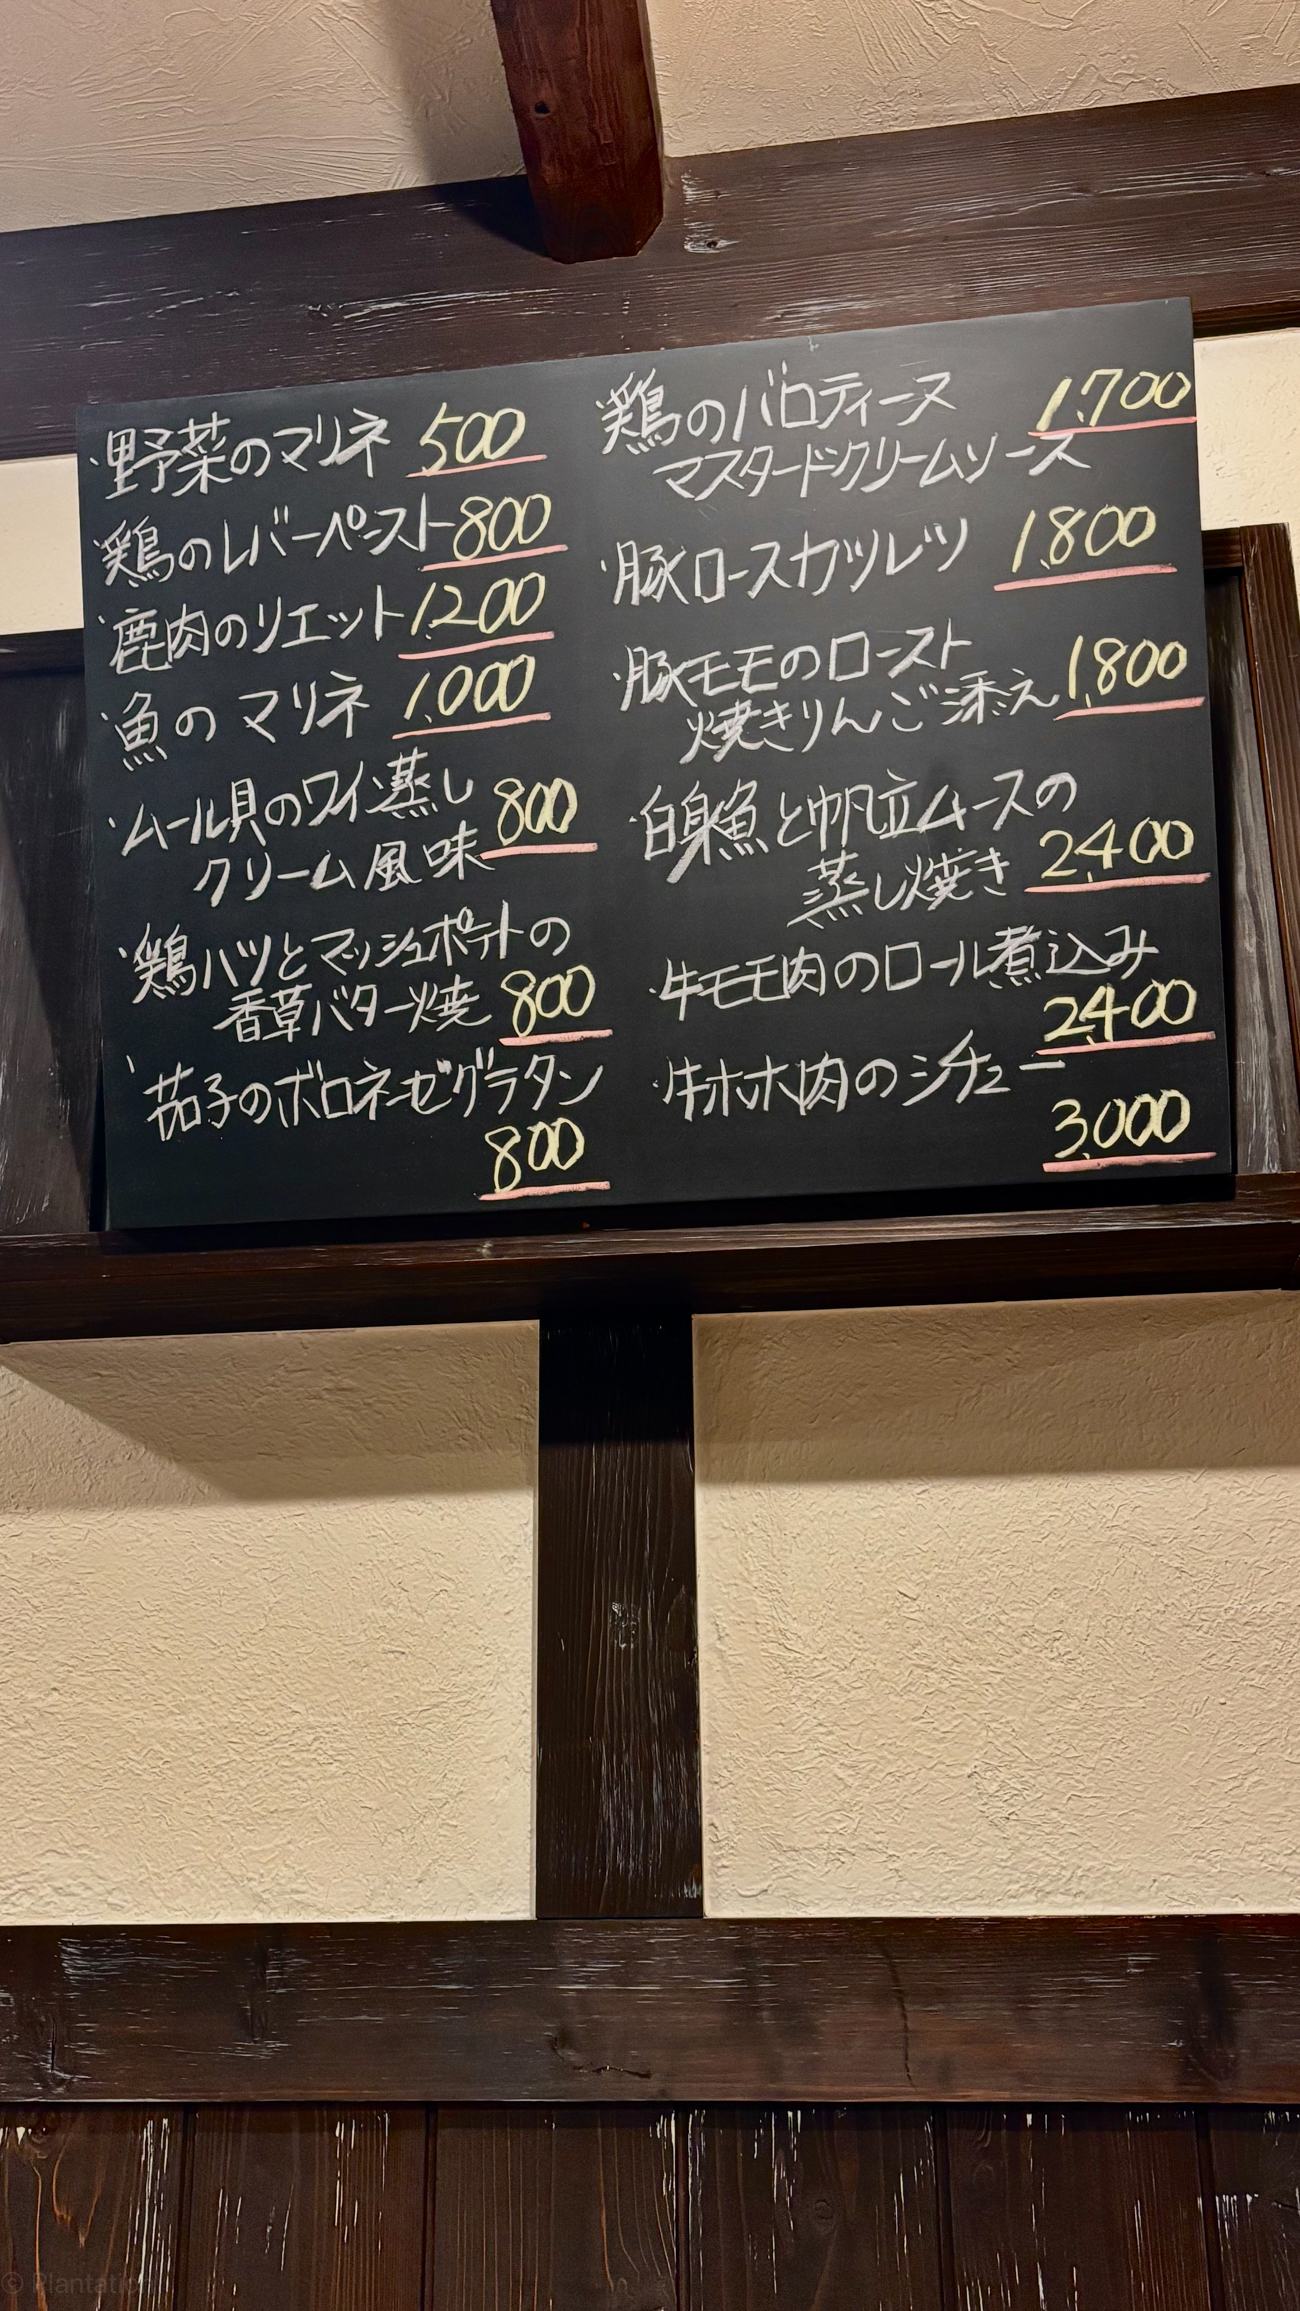 ・野菜のマリネ 500
・鶏のレバーペースト 800
・鹿肉のリエット 1,200
・魚のマリネ 1,000
・ムール貝のワイン蒸し
クリーム風味 800
・鶏ハツとマッシュポテトの
香草バター焼 800
・茄子のボロネーゼグラタン
800
・鶏のバロティーヌ 1,700
マスタードクリームソース
・豚ロースカツレツ 1,800
・豚モモのロースト
焼きりんご添え 1,800
・白身魚と帆立ムースの
蒸し焼き 2,400
・牛モモ肉のロール煮込み
2,400
・牛ホホ肉のシチュー
3,000